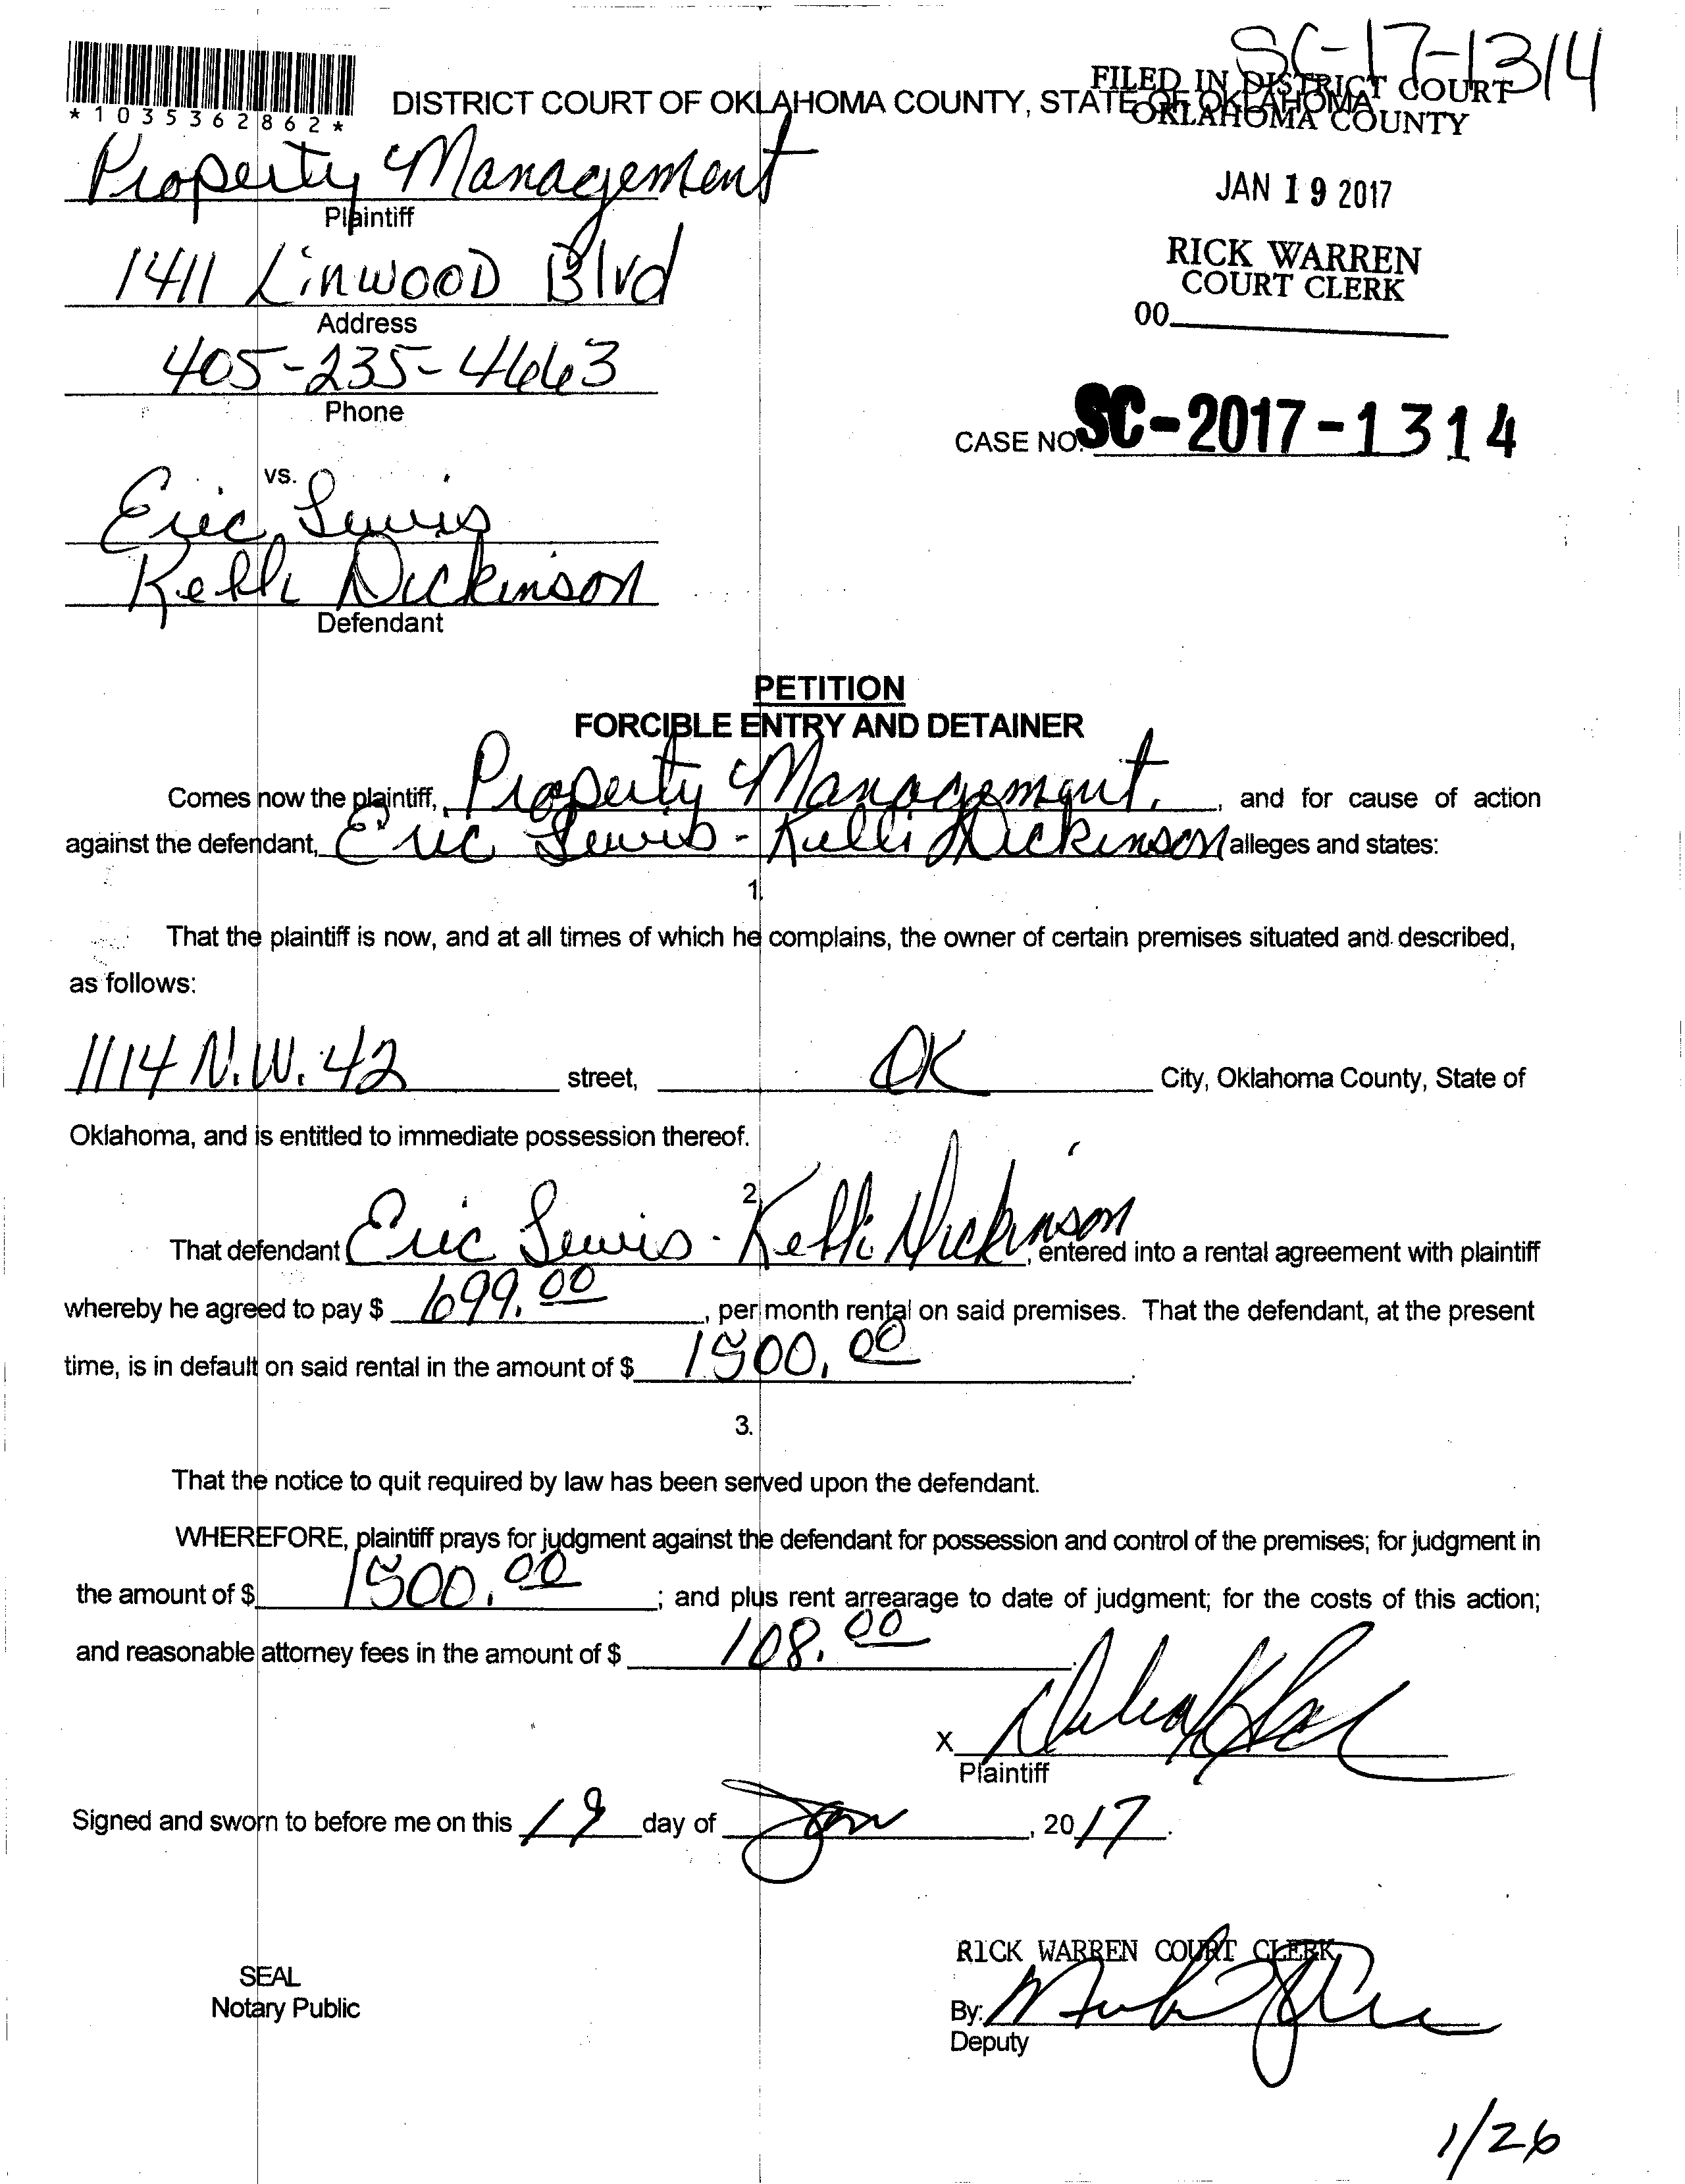 SC-17-1314
*1035362862*
DISTRICT COURT OF OKLAHOMA COUNTY, STATE OF OKLAHOMA
FILED IN DISTRICT COURT
OKLAHOMA COUNTY
JAN 19 2017
RICK WARREN
COURT CLERK
00
Property Management
Plaintiff
1411 Linwood Blvd
Address
405-235-4663
Phone
CASE NO. SC-2017-1314
vs.
Eric Lewis
Kelli Dickinson
Defendant
PETITION
FORCIBLE ENTRY AND DETAINER
Comes now the plaintiff, Property Management, and for cause of action
against the defendant, Eric Lewis - Kelli Dickinson alleges and states:
1.
That the plaintiff is now, and at all times of which he complains, the owner of certain premises situated and described,
as follows:
1114 N.W. 42 street, OK City, Oklahoma County, State of
Oklahoma, and is entitled to immediate possession thereof.
2.
That defendant Eric Lewis - Kelli Dickinson, entered into a rental agreement with plaintiff
whereby he agreed to pay $ 699.00, per month rental on said premises. That the defendant, at the present
time, is in default on said rental in the amount of $ 1500.00.
3.
That the notice to quit required by law has been served upon the defendant.
WHEREFORE, plaintiff prays for judgment against the defendant for possession and control of the premises; for judgment in
the amount of $ 1500.00; and plus rent arrearage to date of judgment; for the costs of this action;
and reasonable attorney fees in the amount of $ 108.00.
X
Plaintiff
Signed and sworn to before me on this 19 day of Jan, 2017.
RICK WARREN COURT CLERK
SEAL
Notary Public
By:
Deputy
1/26